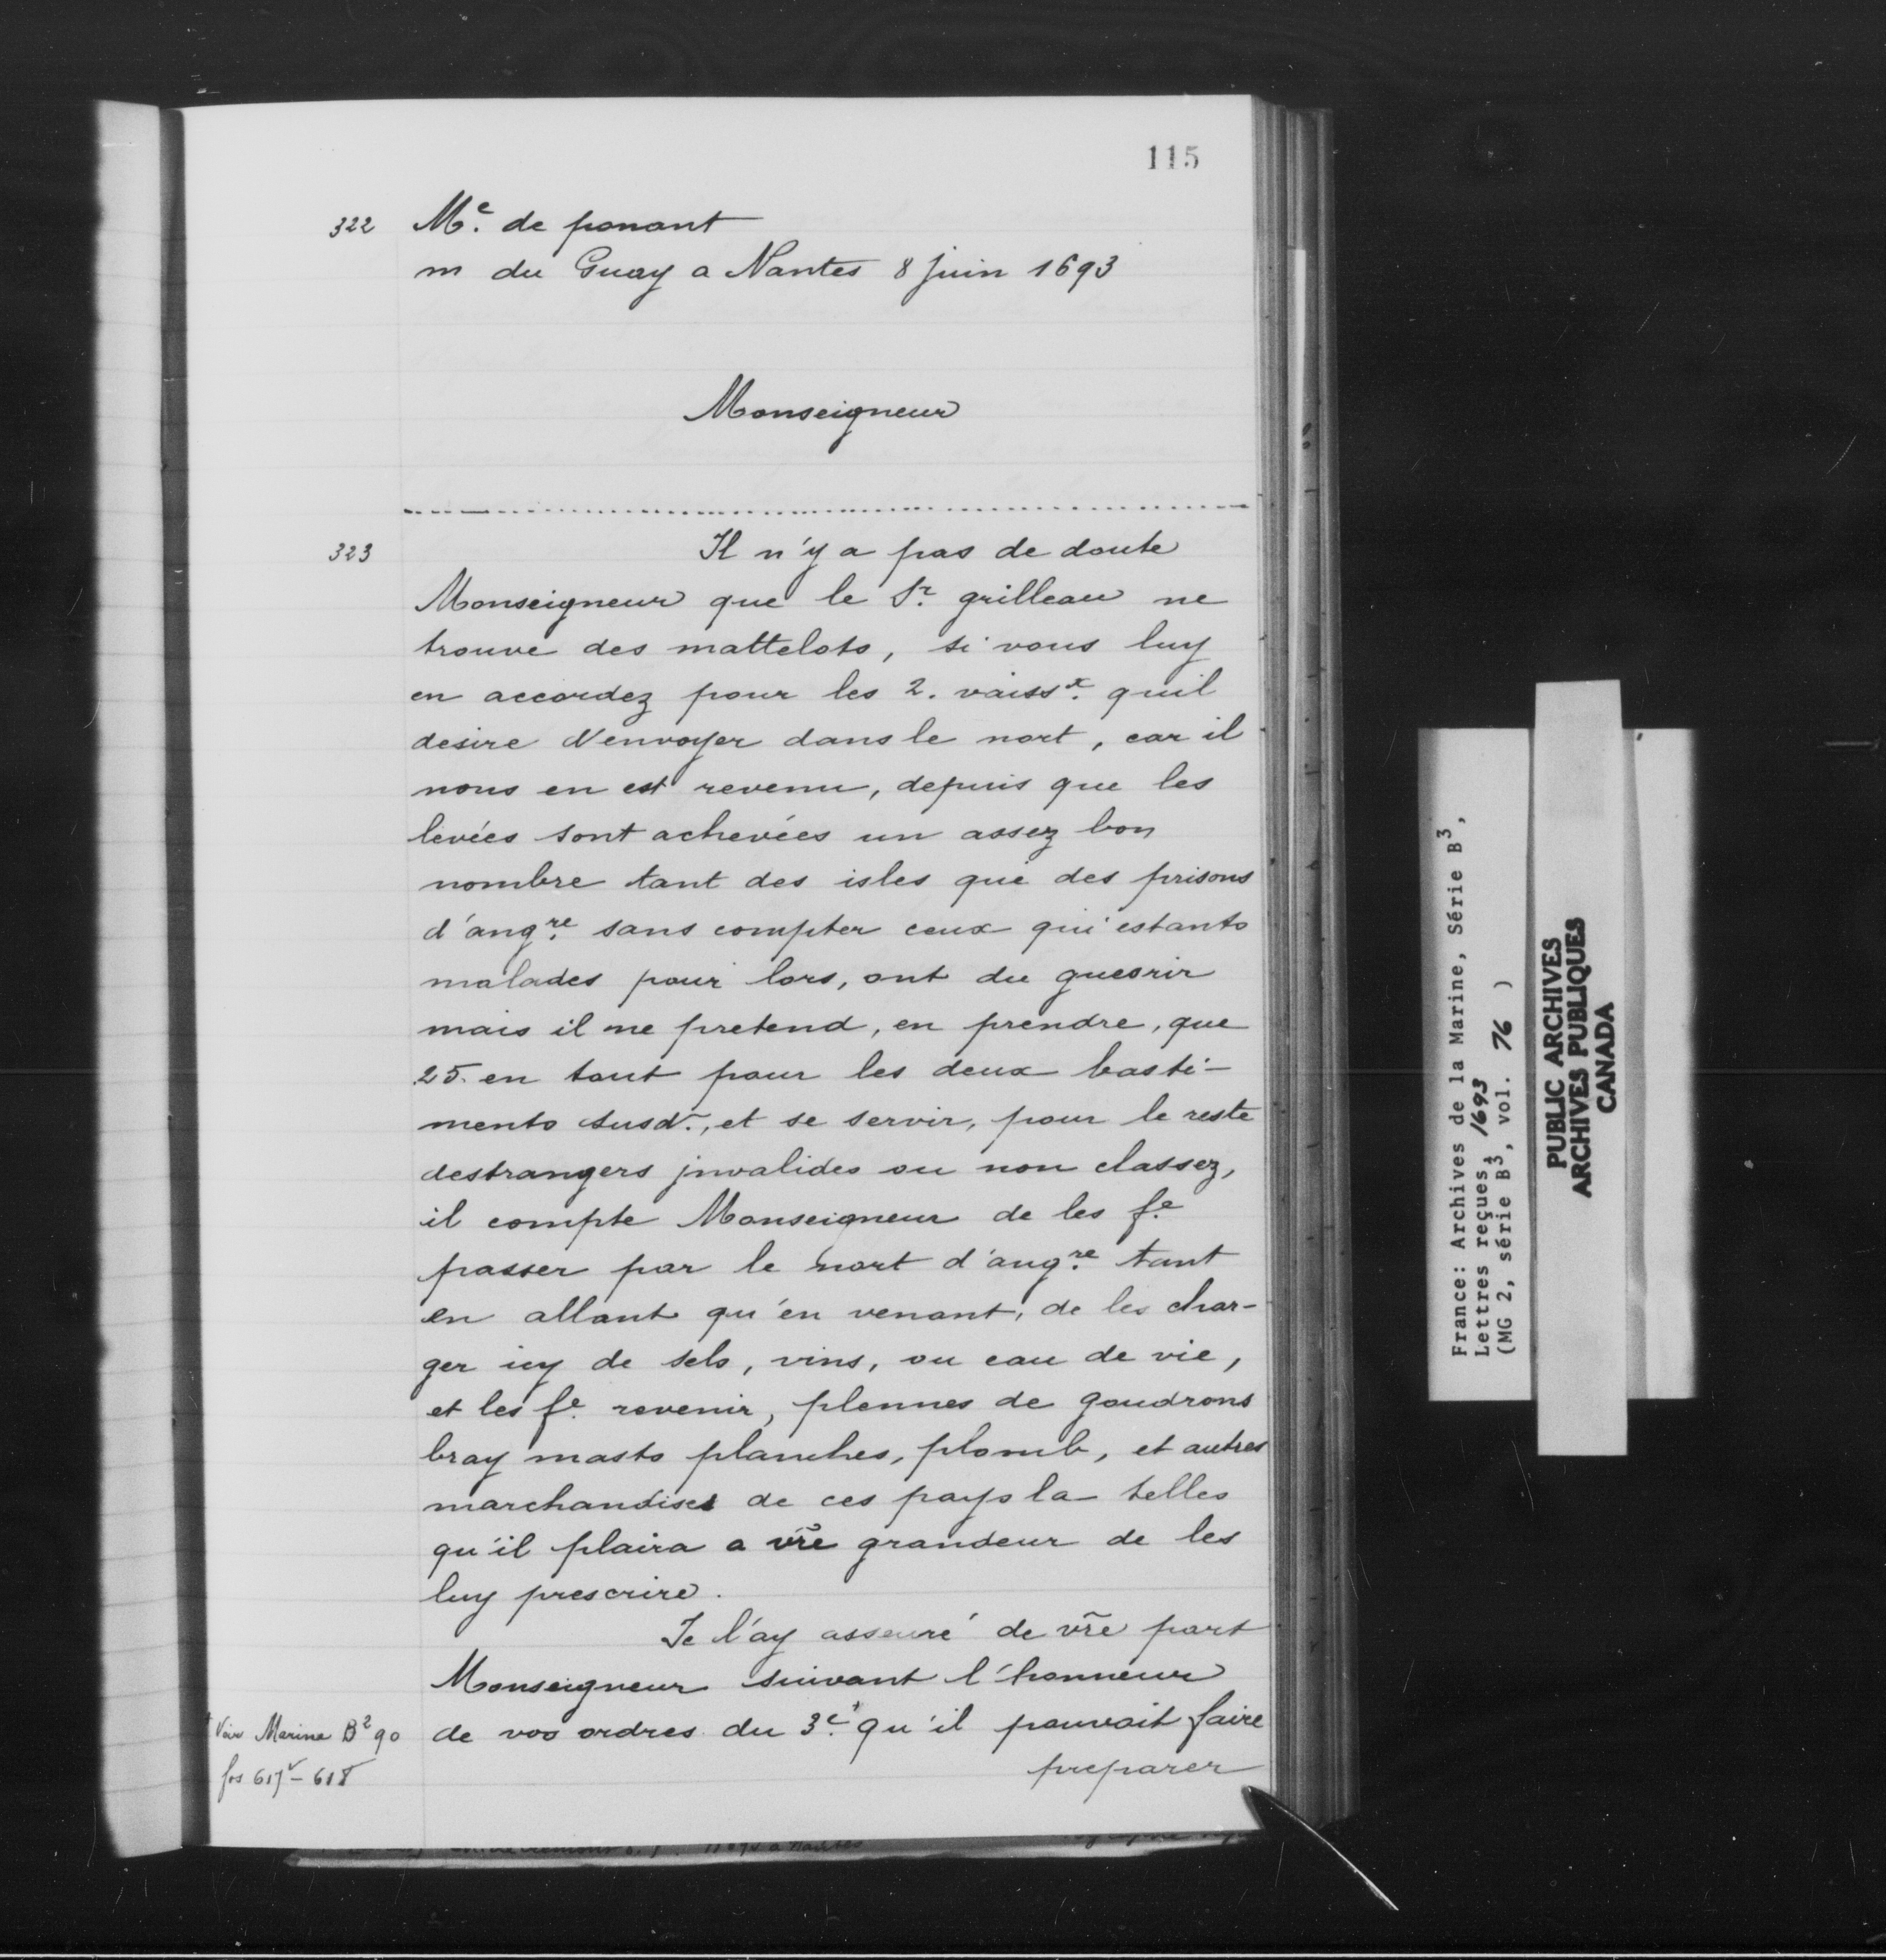 115
322 Mᵉ. de ponant
m du Guay a Nantes 8 juin 1693
Monseigneur
323 Il n'y a pas de doute
Monseigneur que le Sʳ. grilleau ne
trouve des mattelots, si vous luy
en accordez pour les 2. vaissˣ. quil
desire d'envoyer dans le nort, car il
nous en est revenu, depuis que les
levées sont achevées un assez bon
nombre tant des isles que des prisons
d'angʳᵉ. sans compter ceux qui estants
malades pour lors, ont du guesrir
mais il ne pretend, en prendre, que
25. en tout pour les deux basti-
ments susd., et se servir, pour le reste
destrangers jnvalides ou non classez,
il compte Monseigneur de les fᵉ.
passer par le nort d'angʳᵉ. tant
en allant qu'en venant, de les char-
ger icy de sels, vins, ou eau de vie,
et les fᵉ. revenir, plennes de goudrons
bray masts planches, plomb, et autres
marchandises de ces pays la telles
qu'il plaira a vr̃e grandeur de les
luy prescrire.
Je l'ay asseuré de vr̃e part
Monseigneur suivant l'honneur
de vos ordres du 3ᵉ.† qu'il pouvait faire
preparer
† Voir Marine B² 90
fos 617ᵛ - 618
France: Archives de la Marine, Série B³,
Lettres reçues, 1693
(MG 2, série B³, vol. 76 )
PUBLIC ARCHIVES
ARCHIVES PUBLIQUES
CANADA